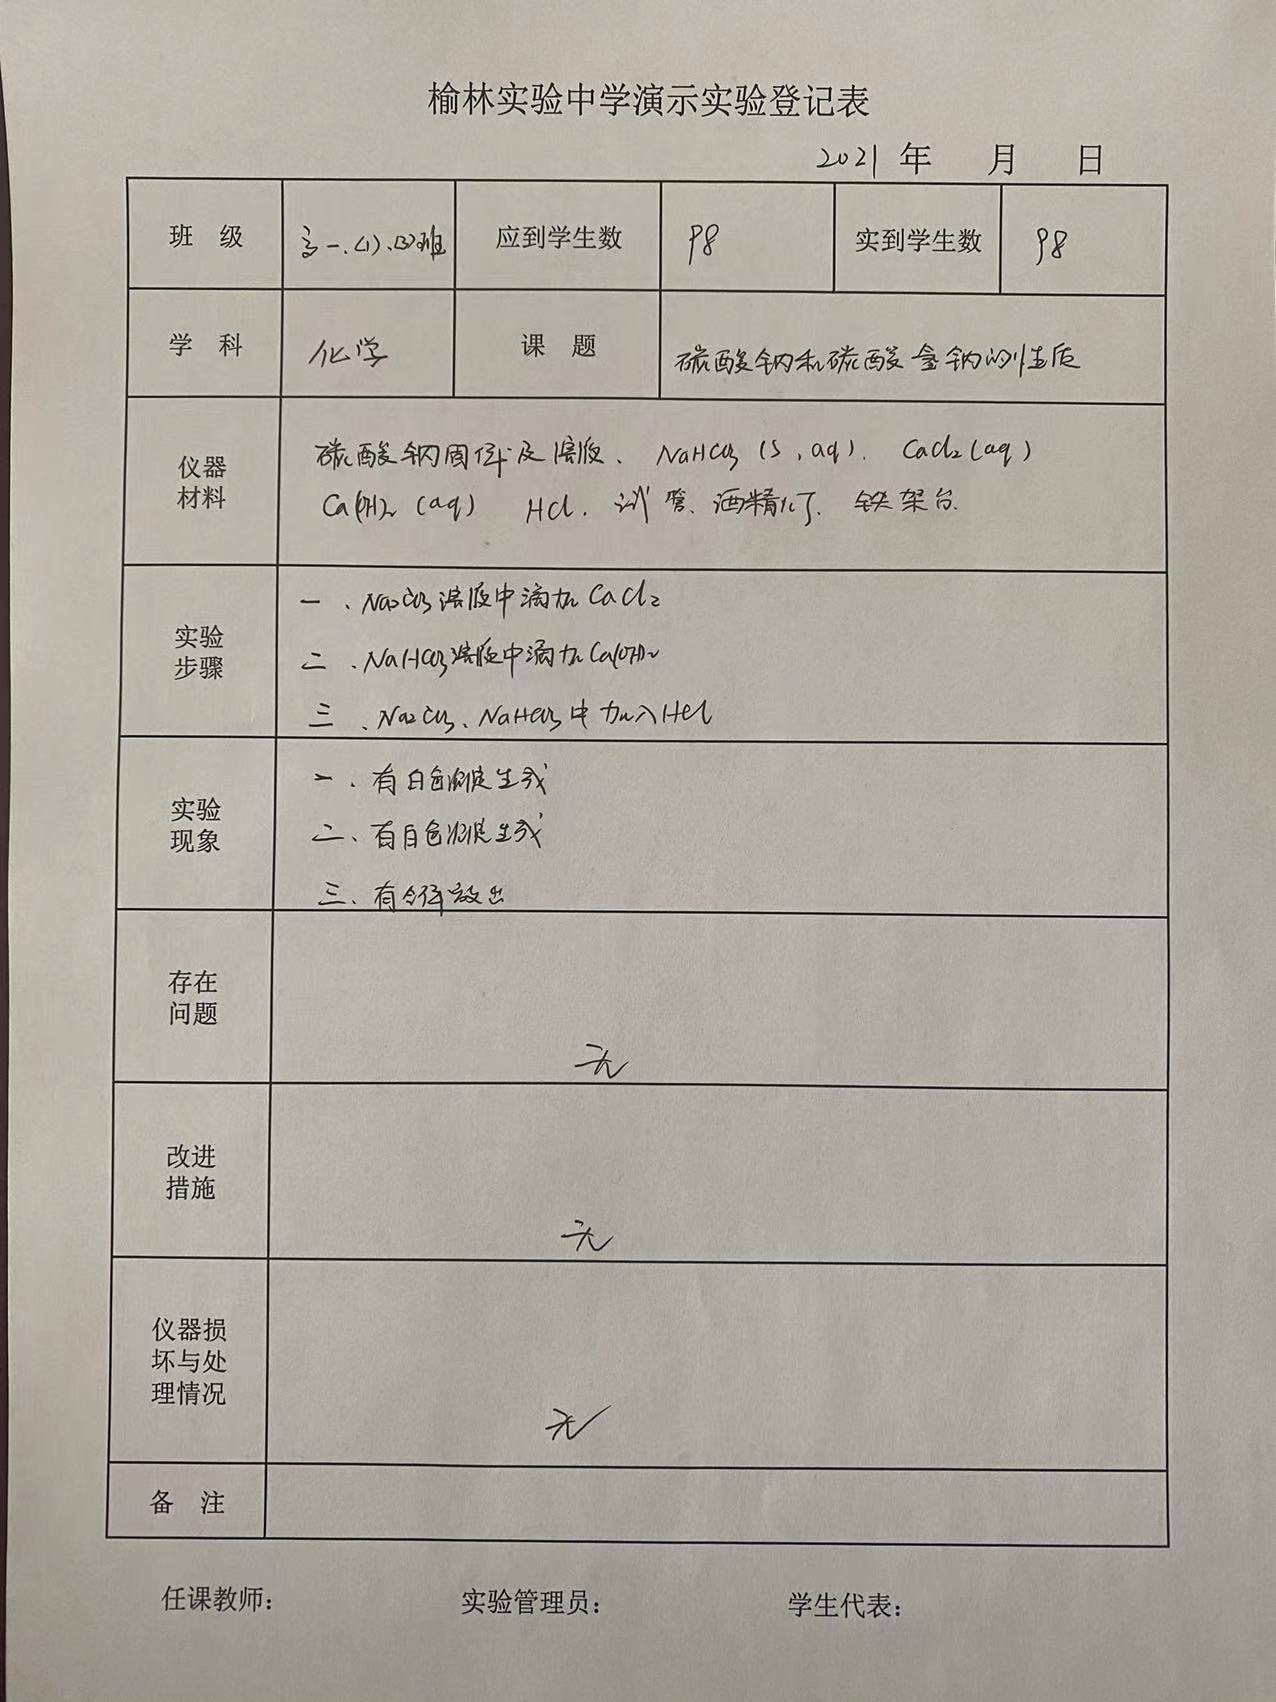 榆林实验中学演示实验登记表
2021 年 月 日
班 级 高一.(1)、(3)班 应到学生数 98 实到学生数 98
学 科 化学 课 题 碳酸钠和碳酸氢钠的性质
仪器
材料
碳酸钠固体及溶液、NaHCO3 (s,aq). CaCl2(aq)
Ca(OH)2 (aq) HCl. 试管、酒精灯、铁架台.
实验
步骤
一、Na2CO3溶液中滴加CaCl2
二、NaHCO3溶液中滴加Ca(OH)2
三、Na2CO3、NaHCO3中加入HCl
实验
现象
一、有白色沉淀生成
二、有白色沉淀生成
三、有气体放出
存在
问题
无
改进
措施
无
仪器损
坏与处
理情况
无
备 注
任课教师: 实验管理员: 学生代表: